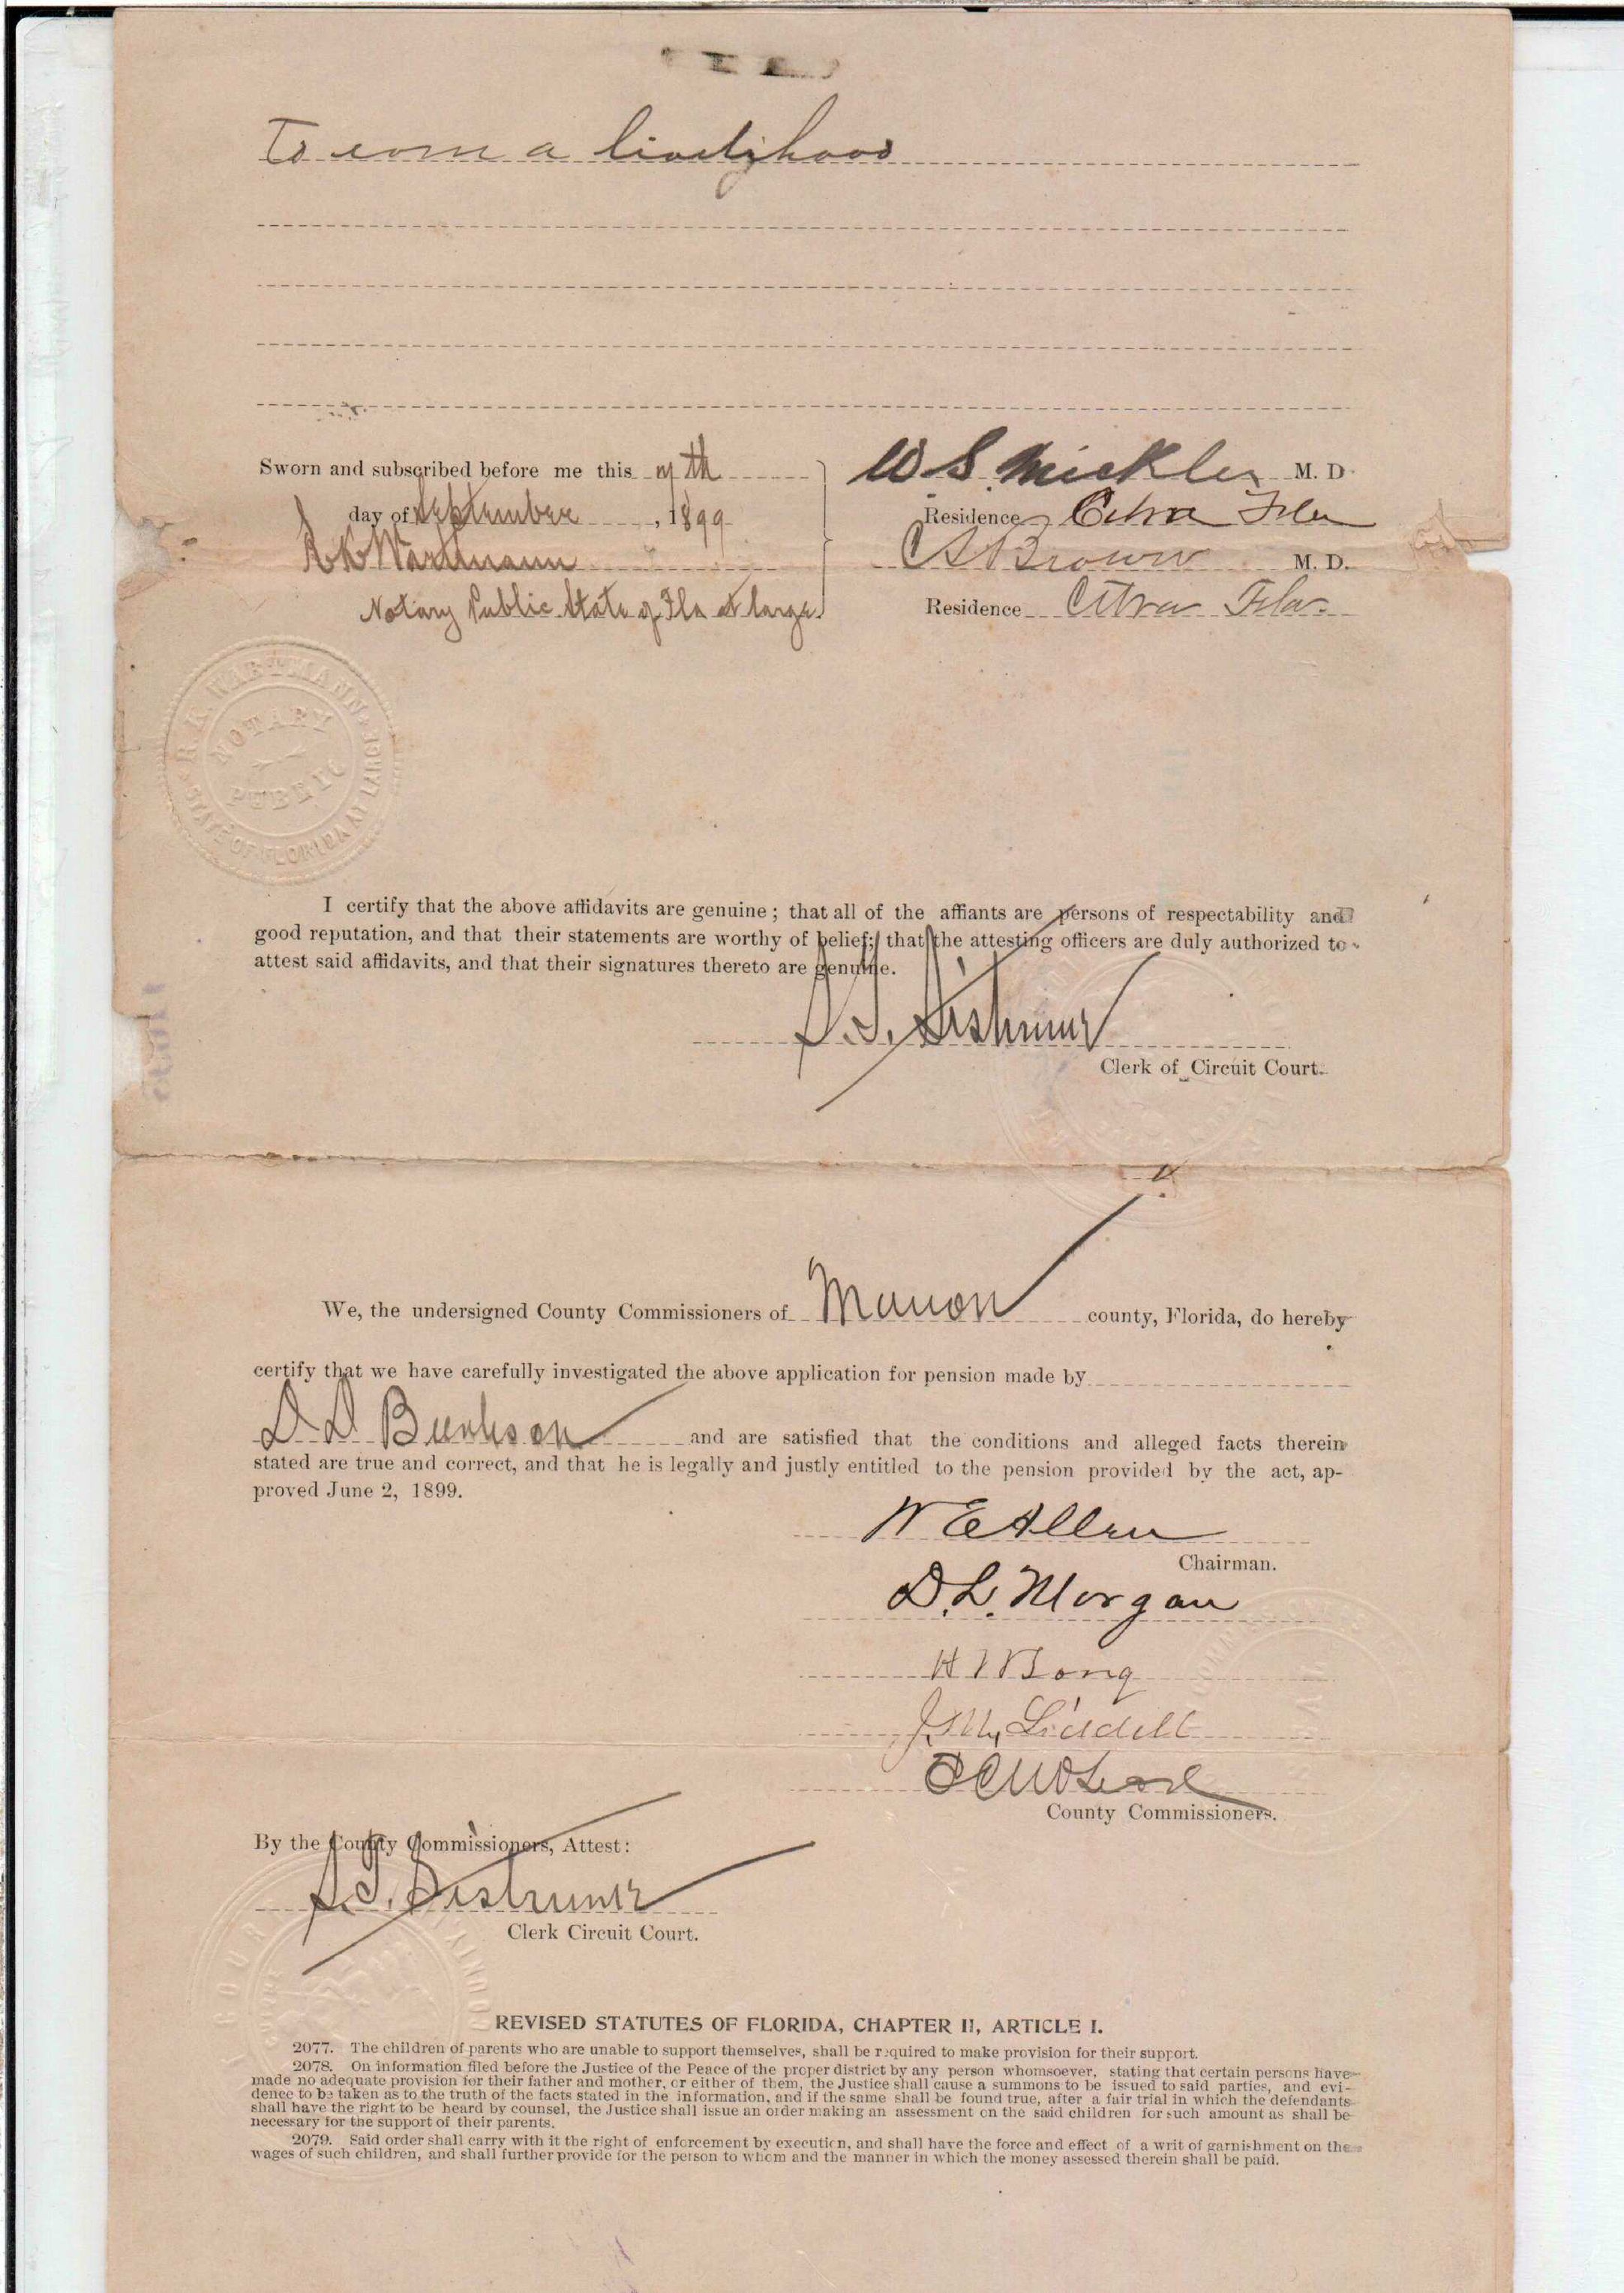 To earn a livelihood
Sworn and subscribed before me this 7th
day of September, 1899
R K Wartmann
Notary Public State of Fla at large
W S. Mickler M. D.
Residence Citra Fla
C S Brown M. D.
Residence Citra Fla.
R. K. WARTMANN
NOTARY
PUBLIC
STATE OF FLORIDA AT LARGE
I certify that the above affidavits are genuine; that all of the affiants are persons of respectability and
good reputation, and that their statements are worthy of belief; that the attesting officers are duly authorized to
attest said affidavits, and that their signatures thereto are genuine.
S. T. Sistrunk
Clerk of Circuit Court.
We, the undersigned County Commissioners of Marion county, Florida, do hereby
certify that we have carefully investigated the above application for pension made by
D D and are satisfied that the conditions and alleged facts therein
stated are true and correct, and that he is legally and justly entitled to the pension provided by the act, ap-
proved June 2, 1899.
W E Allen
Chairman.
D. L. Morgan
H W Long
J. M. Liddell
County Commissioners.
By the County Commissioners, Attest:
S. T. Sistrunk
Clerk Circuit Court.
REVISED STATUTES OF FLORIDA, CHAPTER II, ARTICLE I.
2077. The children of parents who are unable to support themselves, shall be required to make provision for their support.
2078. On information filed before the Justice of the Peace of the proper district by any person whomsoever, stating that certain persons have
made no adequate provision for their father and mother, or either of them, the Justice shall cause a summons to be issued to said parties, and evi-
dence to be taken as to the truth of the facts stated in the information, and if the same shall be found true, after a fair trial in which the defendants
shall have the right to be heard by counsel, the Justice shall issue an order making an assessment on the said children for such amount as shall be
necessary for the support of their parents.
2079. Said order shall carry with it the right of enforcement by execution, and shall have the force and effect of a writ of garnishment on the
wages of such children, and shall further provide for the person to whom and the manner in which the money assessed therein shall be paid.